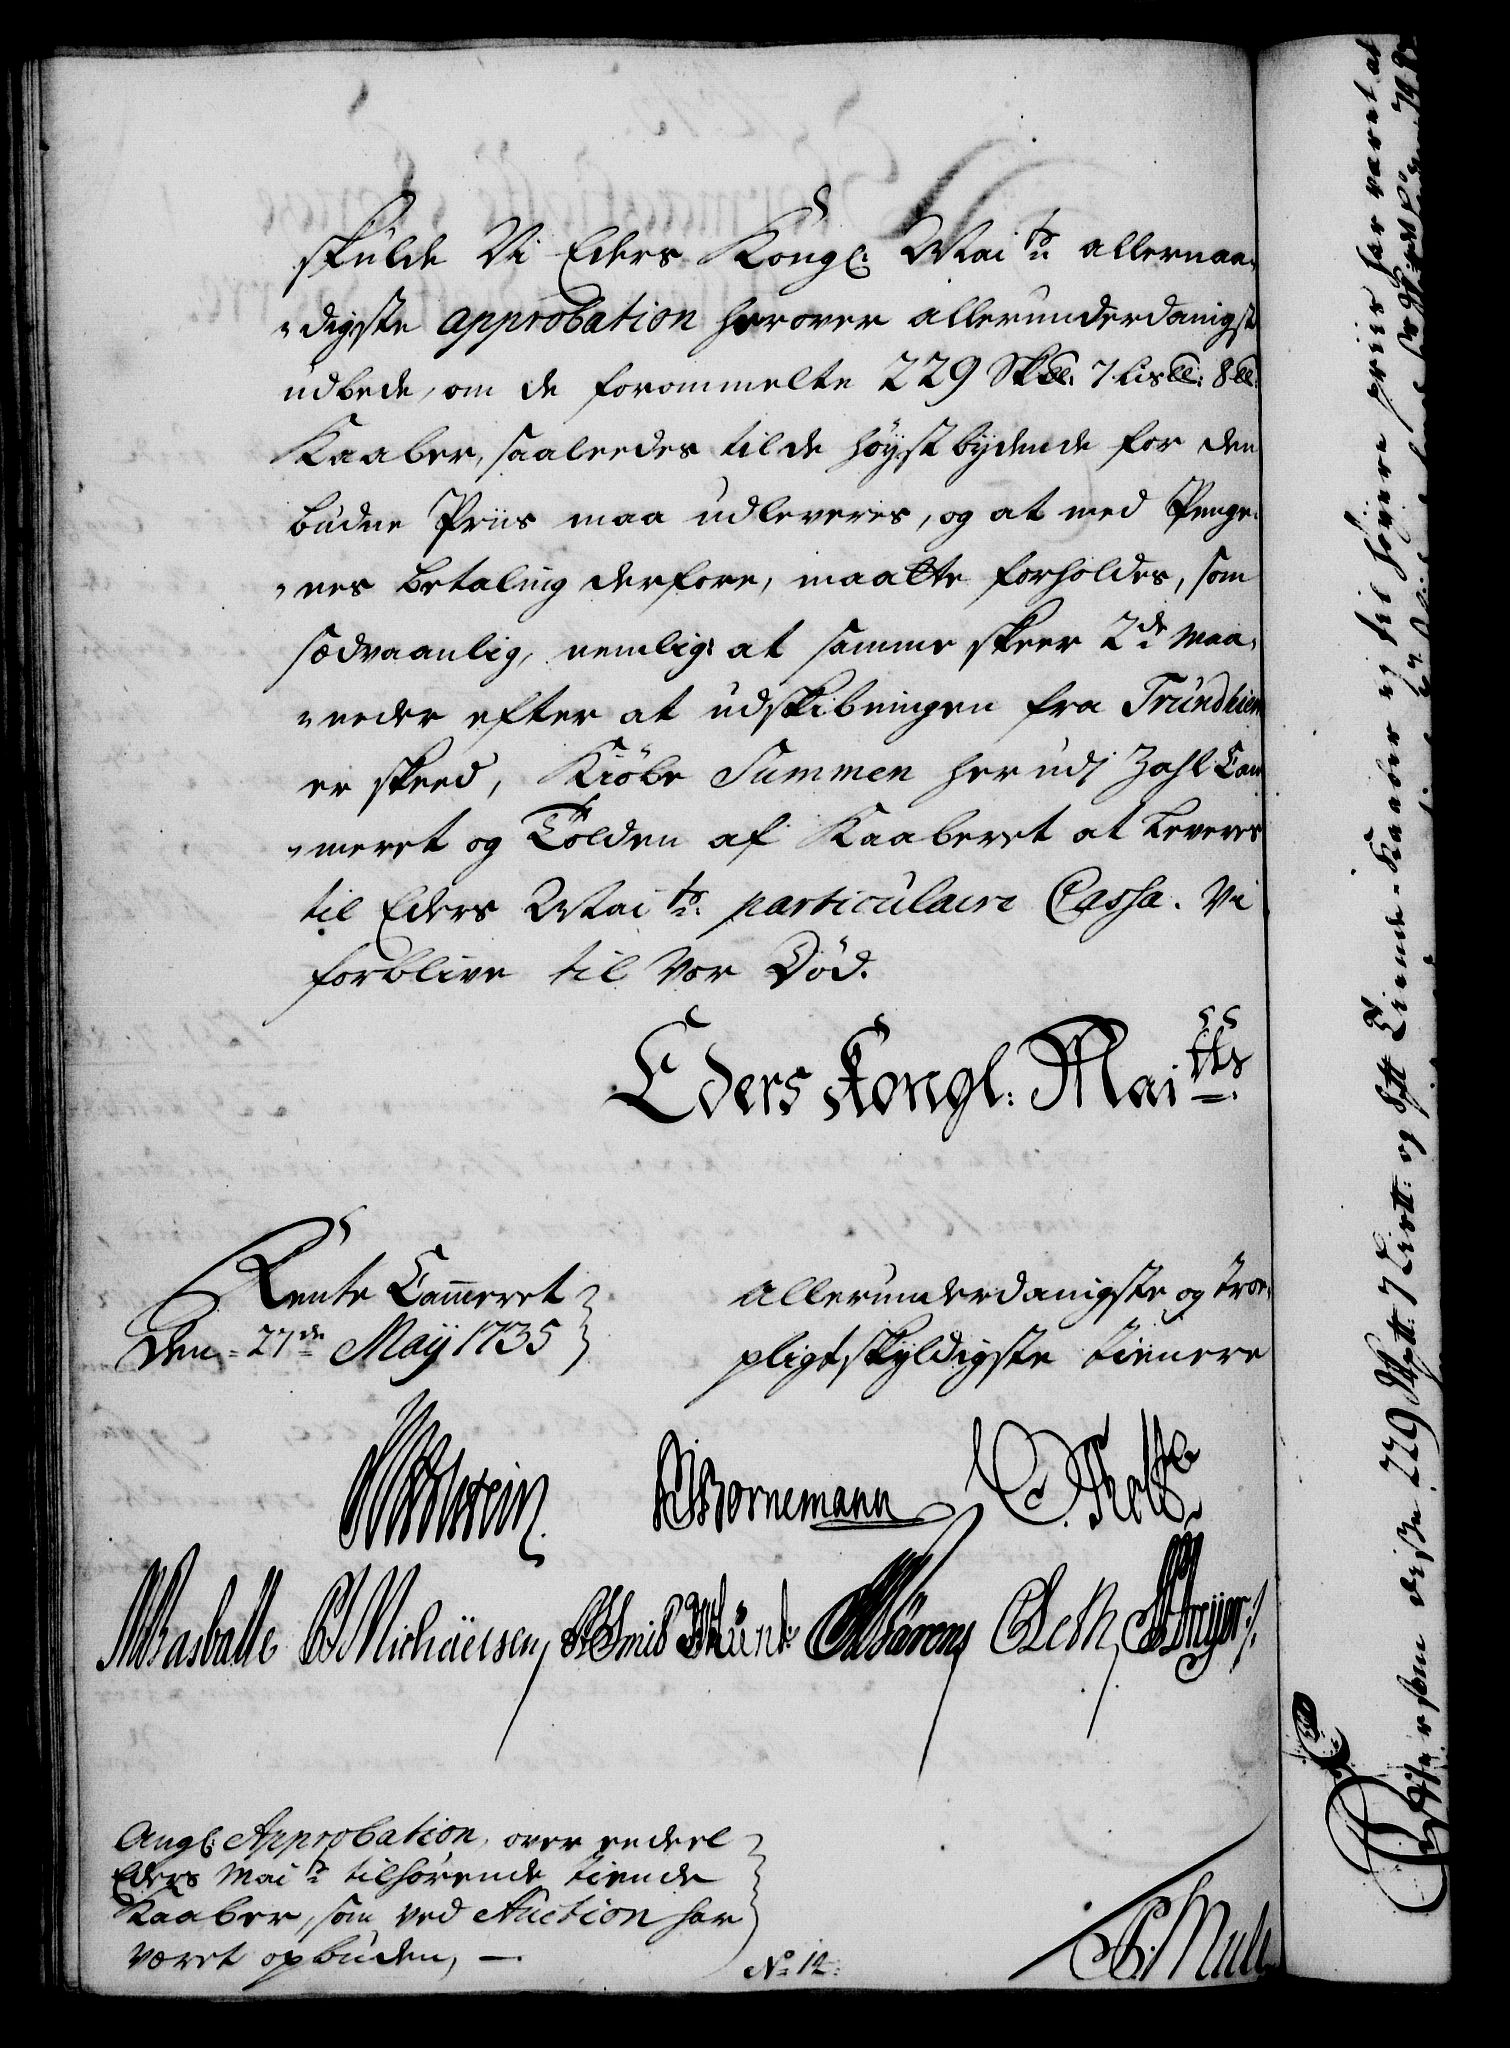 skulde Vi Eders Kongl: Mai ts: allernaa-
digste approbation herover allerunderdanigst
udbede, om de forommelte 229 Sk℔: 7 Lis℔: 8 ℔:
Kaaber, saaleedes til de høystbydende for den
budne Priis maa udleveres, og at med Penge-
nes betaling derfore, maatte forholdes, som
sædvaanlig, nemlig: at samme skeer 2de Maa-
neder efter at udskibningen fra Trundhiem
er skeed, Kiöbe Summen her udj Zahl Cam-
meret og Tolden af Kaaberet at leveres
til Eders Mai ts: particulaire Cassa. Vi
forblive til vor Död.
Eders Kongl: Mai tts:
Rente Cammeret
Den 27de Maij 1735
allerunderdanigste og troe-
pligtskyldigste tienere
Bornemann
C. Holt
Michäelsen Smid Munk
Ang: Approbation, over endeel
Eders Mai ts tilhørende tiende
Kaaber, som ved Auction har
været opbuden, —
No 12:
Eftersom disse 229 Sk℔: 7 Lis℔: og 8 ℔ Tiende-Kaaber ej til høyere priis har været at